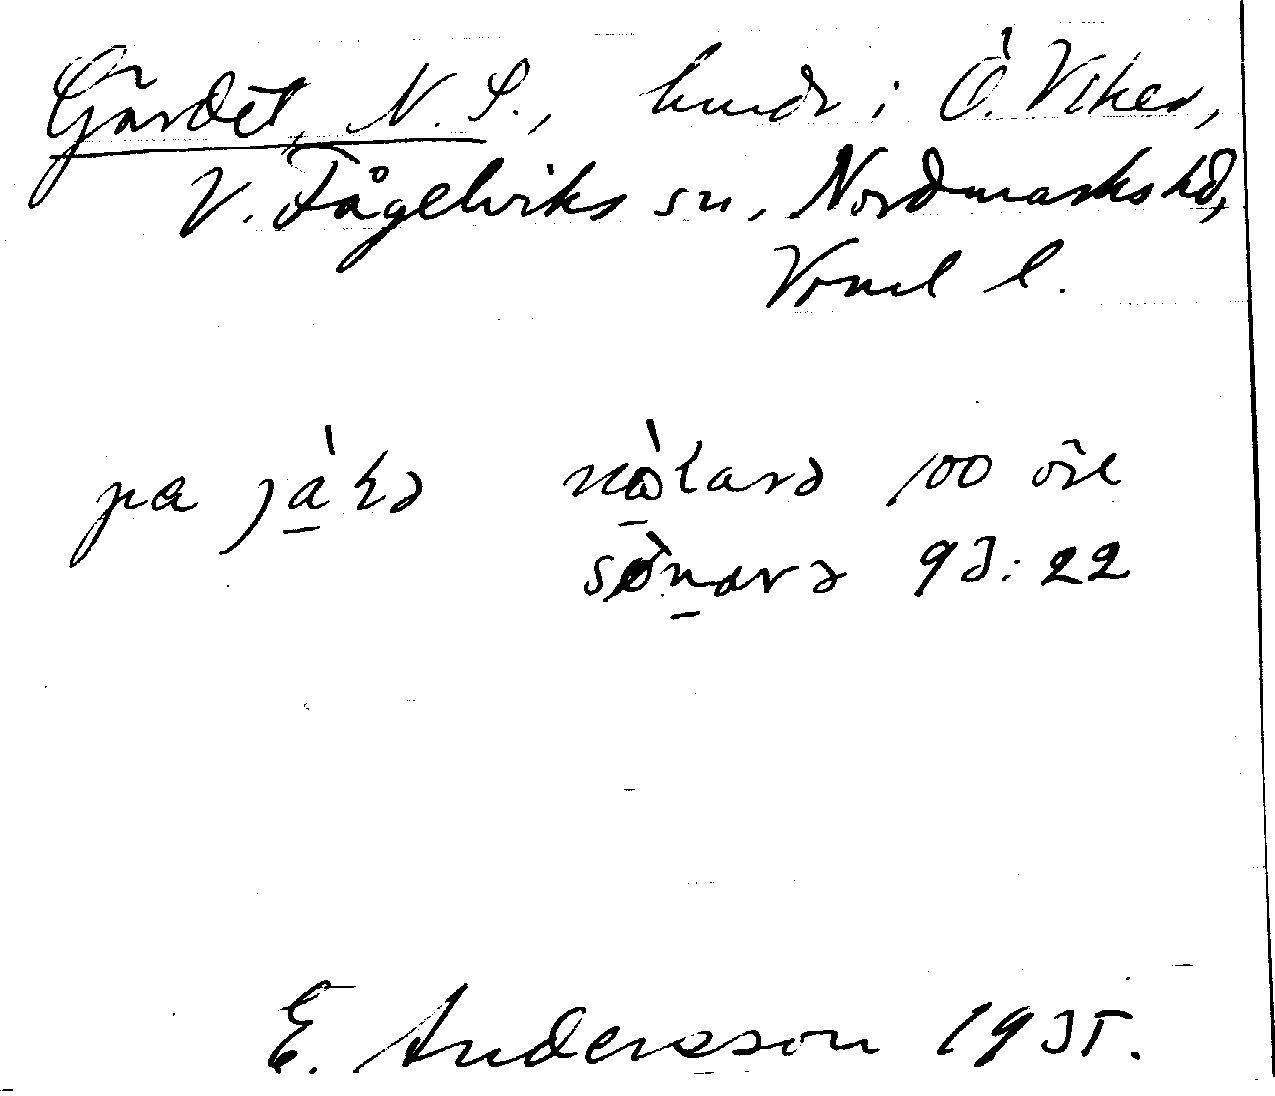 Gärdet, N. S., hmdr i Ö. Viker,
V. Fågelviks sn, Nordmarks hd,
Vrml l.
pa jàkə nòlarə 100 öre
sø̀narə 93:22
E. Andersson 1935.